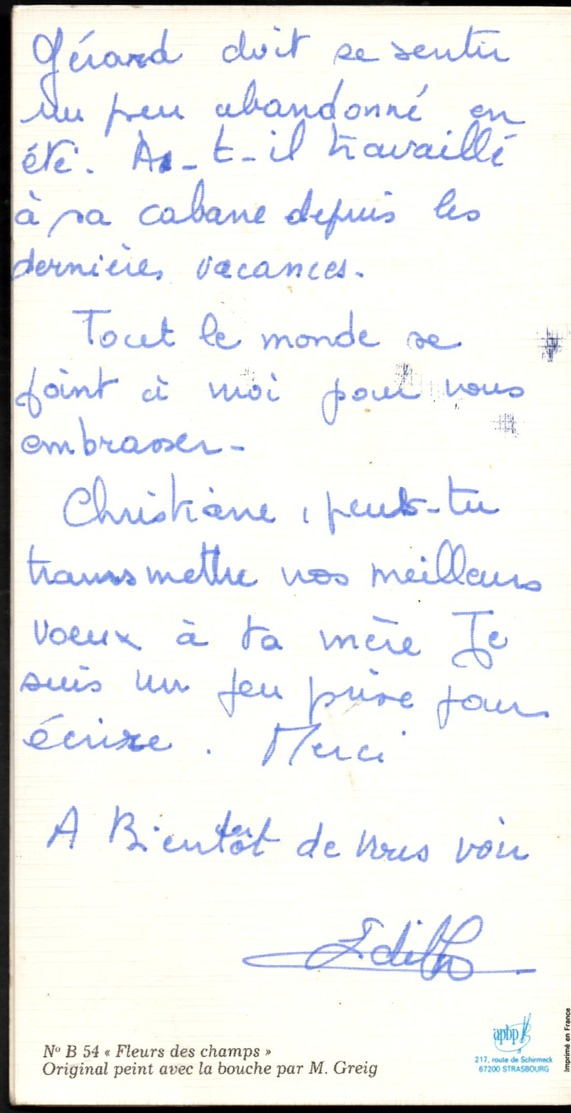 Gérard doit se sentir
un peu abandonné en
été. A-t-il travaillé
à sa cabane depuis les
dernières vacances.
Tout le monde se
joint à moi pour vous
embrasser-
Christiane, peux-tu
transmettre nos meilleurs
voeux à ta mère Je
suis un peu prise pour
écrire. Merci
A Bientôt de vous voir
Edith
N° B 54 « Fleurs des champs »
Original peint avec la bouche par M. Greig
apbp
217, route de Schirmeck
67200 STRASBOURG
Imprimé en France